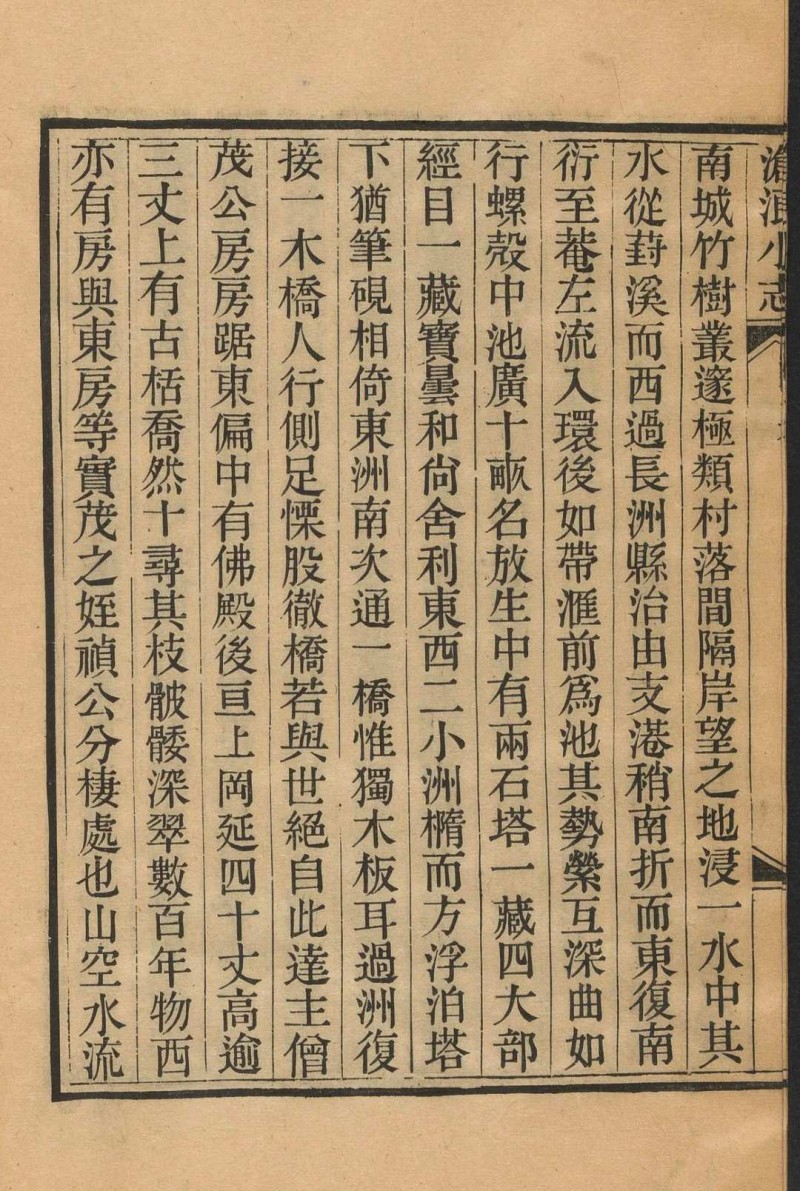 滄浪小志
南城竹樹叢邃極類村落間隔岸望之地浸一水中其
水從葑溪而西過長洲縣治由支港稍南折而東復南
衍至菴左流入環後如帶滙前爲池其勢縈互深曲如
行螺殼中池廣十畝名放生中有兩石塔一藏四大部
經目一藏寶曇和尙舍利東西二小洲橢而方浮泊塔
下猶筆硯相倚東洲南次通一橋惟獨木板耳過洲復
接一木橋人行側足慄股徹橋若與世絕自此達主僧
茂公房房踞東偏中有佛殿後亘上岡延四十丈高逾
三丈上有古栝喬然十尋其枝骳骫深翠數百年物西
亦有房與東房等實茂之姪禎公分棲處也山空水流